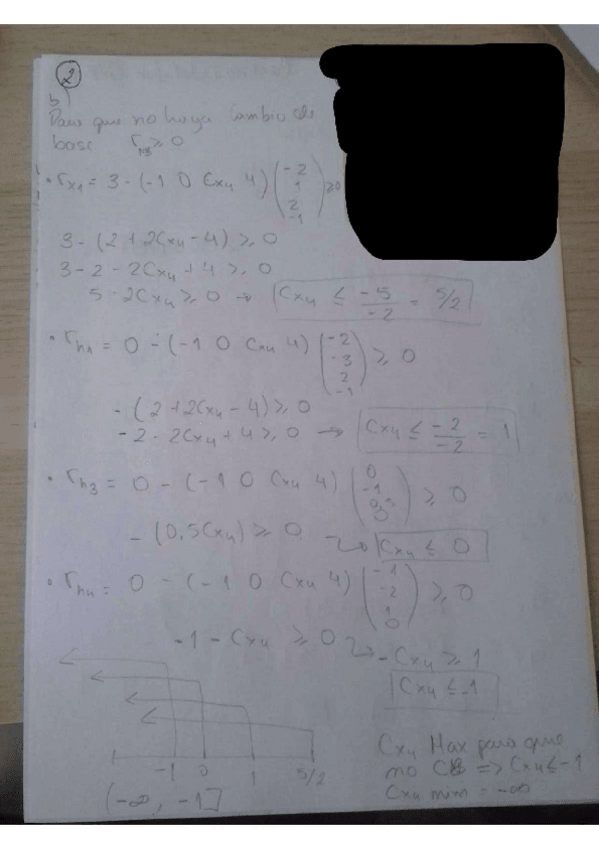 2
b)
Para que no haya cambio de
base r_NB ≥ 0
• r_x1 = 3 - (-1 0 Cx4 4) (-2 1 2 -1) ≥ 0
3 - (2 + 2Cx4 - 4) ≥ 0
3 - 2 - 2Cx4 + 4 ≥ 0
5 - 2Cx4 ≥ 0 → Cx4 ≤ -5/-2 = 5/2
• r_h1 = 0 - (-1 0 Cx4 4) (-2 -3 2 -1) ≥ 0
- (2 + 2Cx4 - 4) ≥ 0
-2 - 2Cx4 + 4 ≥ 0 → Cx4 ≤ -2/-2 = 1
• r_h3 = 0 - (-1 0 Cx4 4) (0 -1 0,5 0) ≥ 0
- (0,5Cx4) ≥ 0 → Cx4 ≤ 0
• r_h4 = 0 - (-1 0 Cx4 4) (-1 -2 1 0) ≥ 0
-1 - Cx4 ≥ 0 → -Cx4 ≥ 1
Cx4 ≤ -1
-1 0 1 5/2
(-∞, -1]
Cx4 Max para que
no CB ⇒ Cx4 ≤ -1
Cx4 min = -∞